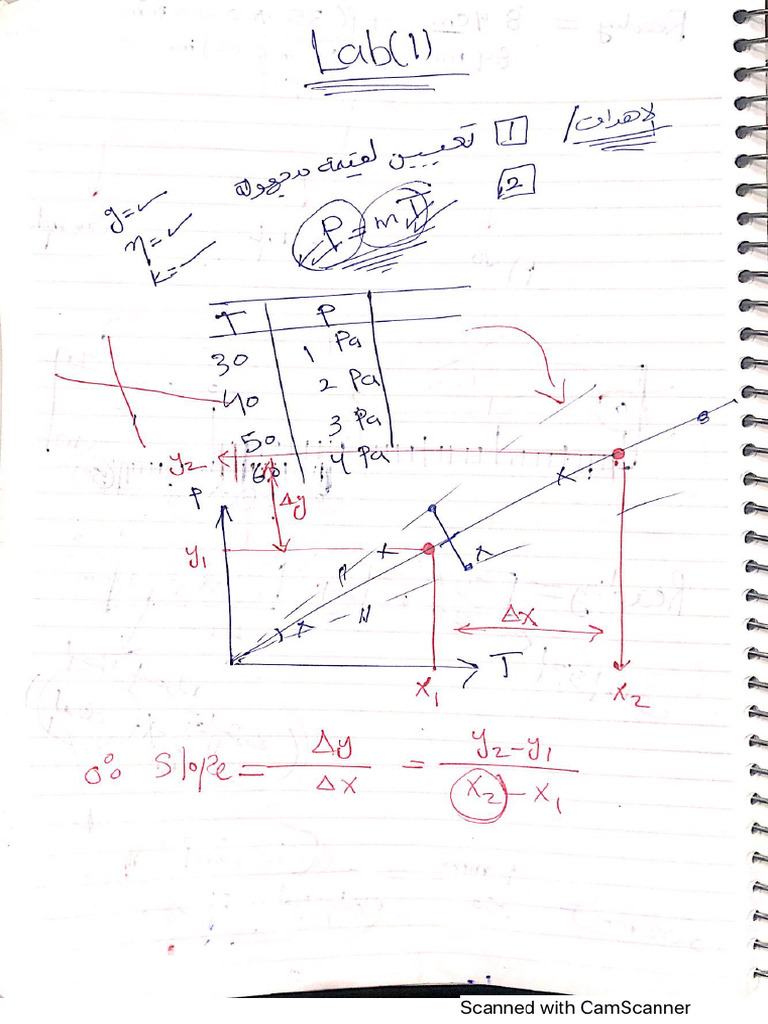 Lab(1)
الاهداف /
1 تعيين لقيمة مجهولة
2
P = mT
g=
η=
k=
T P
30 1 Pa
40 2 Pa
50 3 Pa
60 4 Pa
y2
P
Δy
y1
Δx
T
x1 x2
Slope = Δy / Δx = y2 - y1 / x2 - x1
Scanned with CamScanner